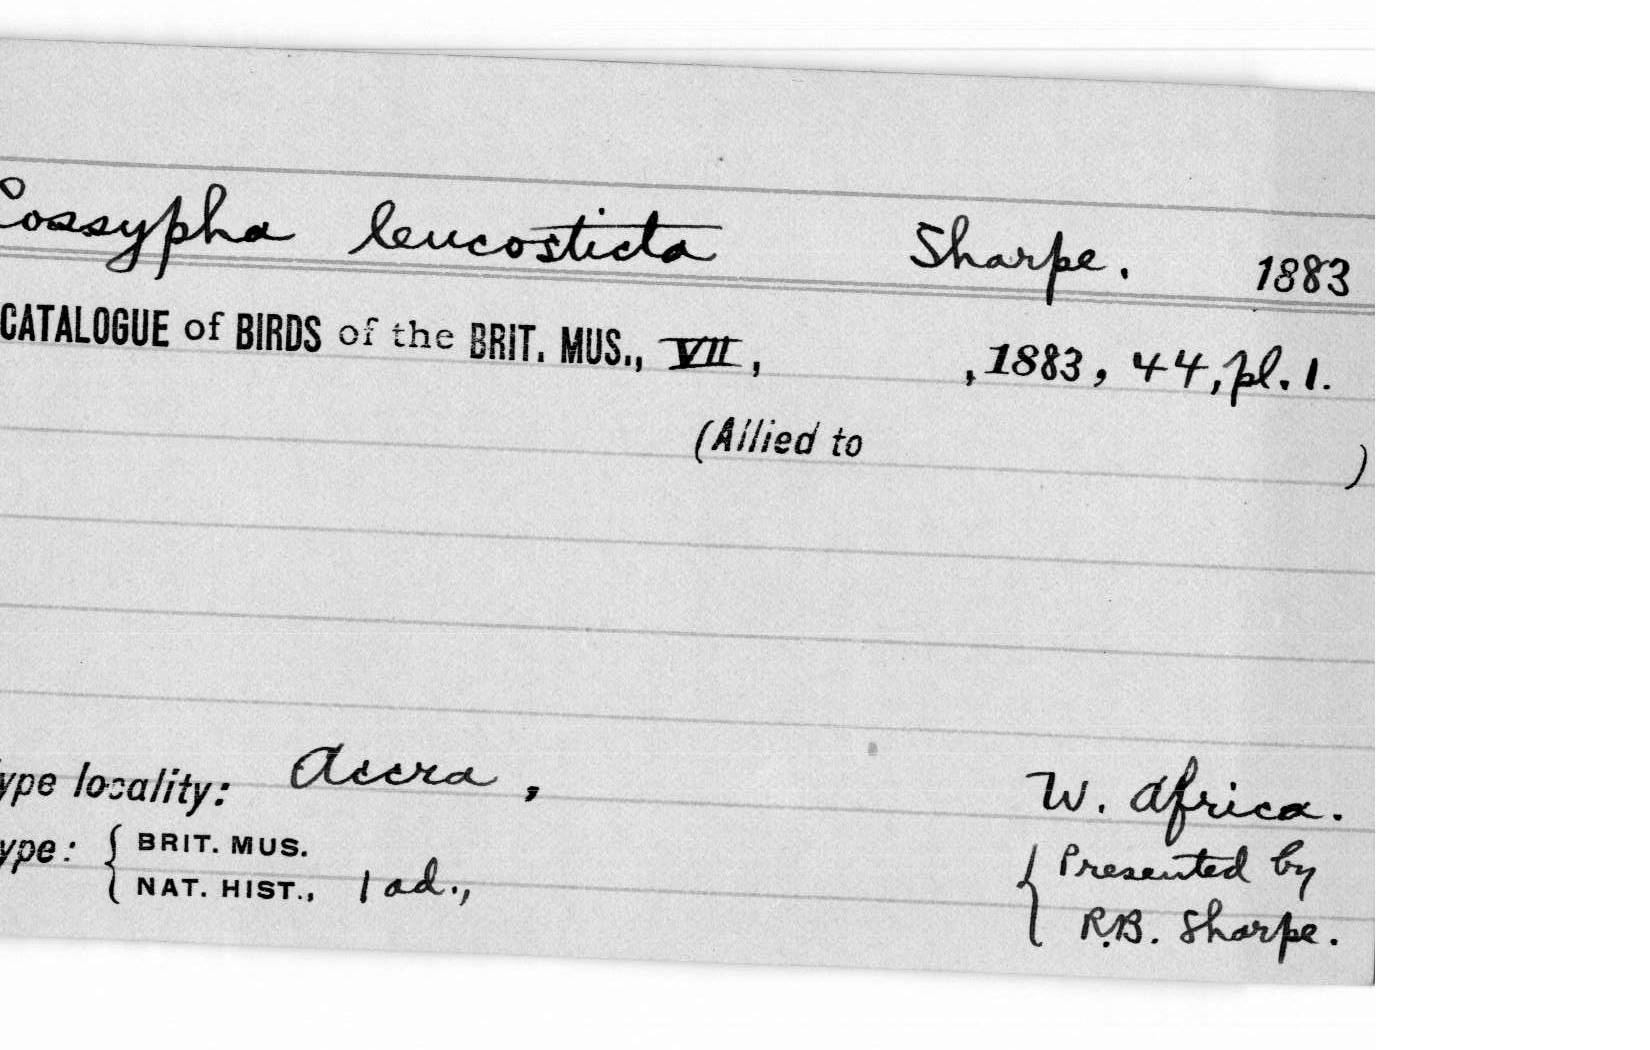 Cossypha leucosticta Sharpe. 1883
CATALOGUE of BIRDS of the BRIT. MUS., VII, , 1883, 44, pl. 1.
(Allied to )
ype locality: Accra, W. Africa.
ype: { BRIT. MUS. NAT. HIST., 1 ad., { Presented by
R.B. Sharpe.